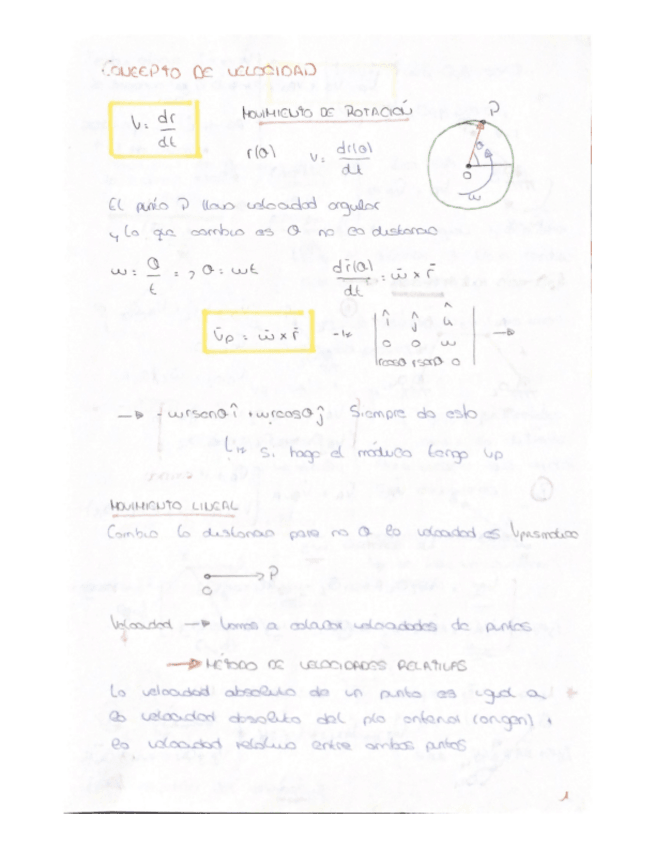 CONCEPTO DE VELOCIDAD
V = dr/dt
MOVIMIENTO DE ROTACIÓN
r(θ) v = dr(θ)/dt
P
θ
O
ω
El punto P lleva velocidad angular
y lo que cambia es θ no la distancia
ω = θ/t => θ = ωt
dr̄(θ)/dt = ω̄ x r̄
v̄p = ω̄ x r̄ → | î ĵ k̂ | →
0 0 ω
rcosθ rsenθ 0
→ -ωrsenθ î + ωrcosθ ĵ Siempre da esto
↳ Si hago el módulo tengo vp
MOVIMIENTO LINEAL
Cambia la distancia pero no θ la velocidad es Vprismática
O → P
Velocidad → Vamos a calcular velocidades de puntos
→ MÉTODO DE VELOCIDADES RELATIVAS
La velocidad absoluta de un punto es igual a
la velocidad absoluta del pto anterior (origen) +
la velocidad relativa entre ambos puntos
1